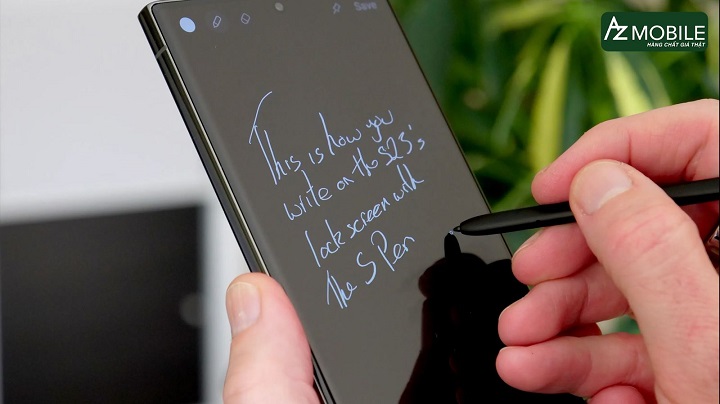 Save
AZ MOBILE
HÀNG CHẤT GIÁ THẬT
This is how you
write on the S23's
lock screen with
The S Pen